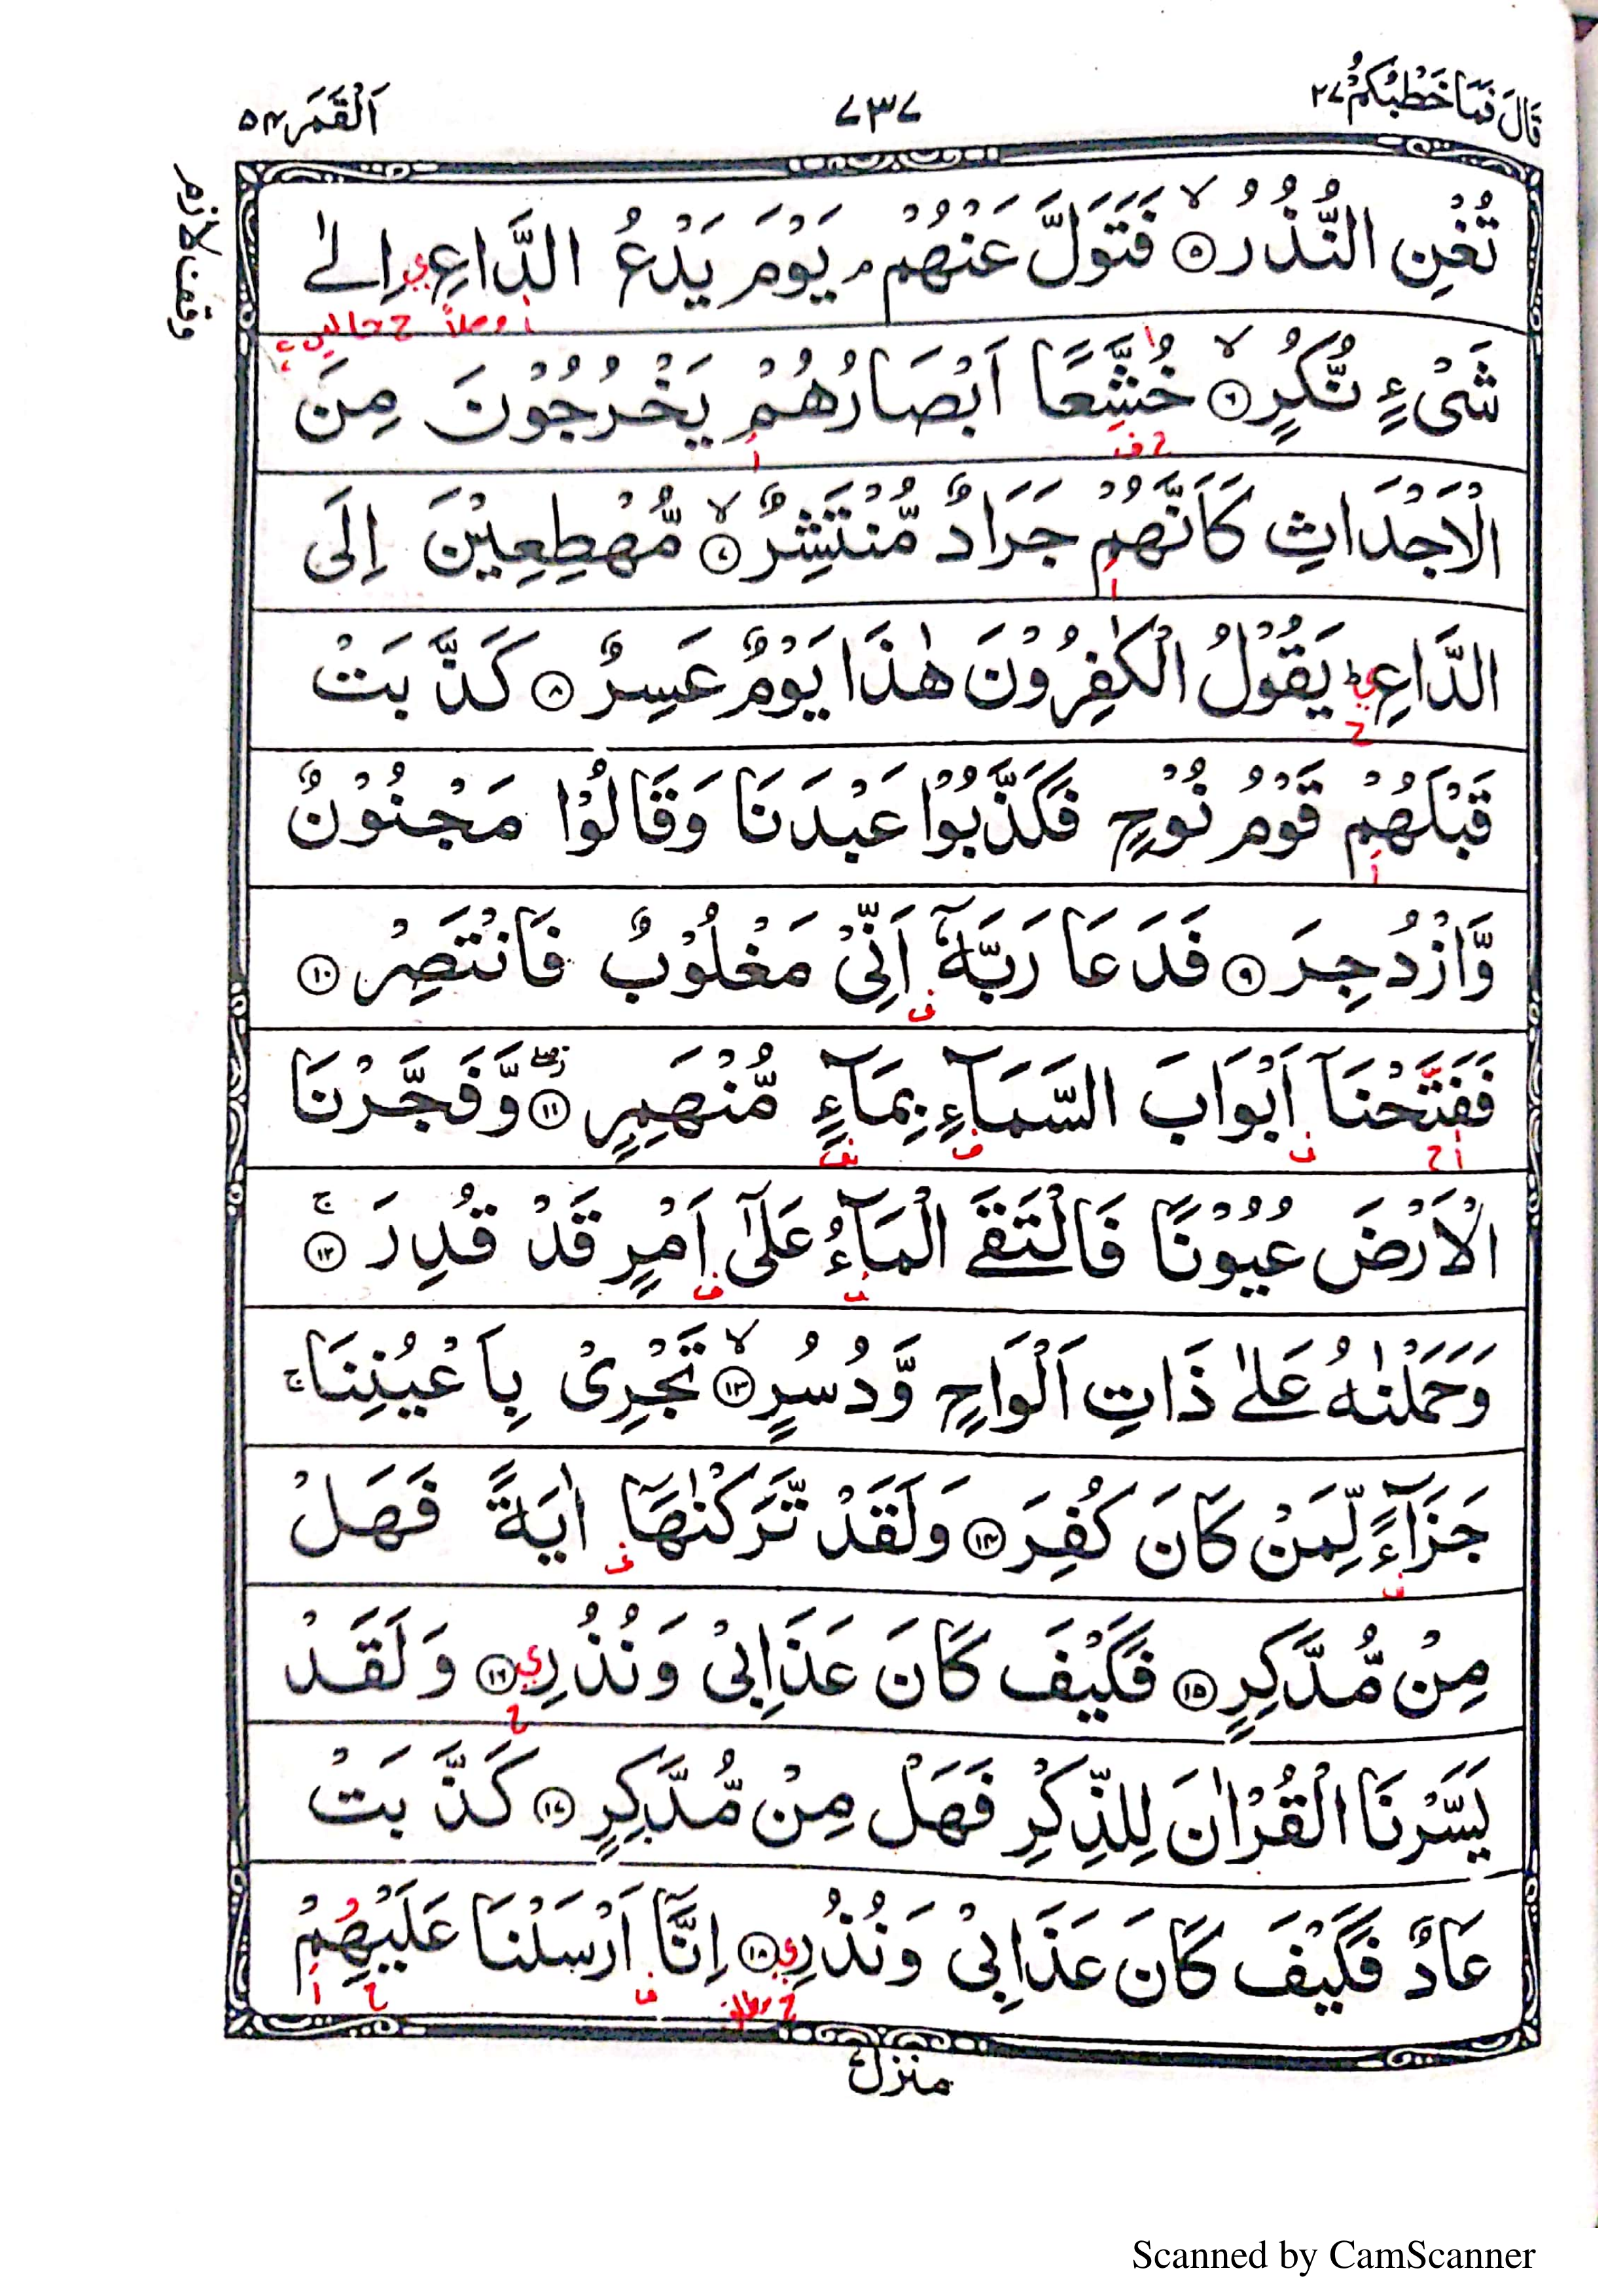 قَالَ فَمَا خَطْبُكُمْ ٢٧
٧٣٧
اَلْقَمَر ٥٤
وقف لازم
تُغْنِ النُّذُرُ ۙ‏﴿۵﴾ فَتَوَلَّ عَنْهُمْ ۘ يَوْمَ يَدْعُ الدَّاعِ اِلٰى
شَىْءٍ نُّكُرٍ ۙ‏﴿۶﴾ خُشَّعًا اَبْصَارُهُمْ يَخْرُجُوْنَ مِنَ
الْاَجْدَاثِ كَاَنَّهُمْ جَرَادٌ مُّنْتَشِرٌ ۙ‏﴿۷﴾ مُّهْطِعِيْنَ اِلَى
الدَّاعِ ؕ يَقُوْلُ الْكٰفِرُوْنَ هٰذَا يَوْمٌ عَسِرٌ ﴿۸﴾ كَذَّبَتْ
قَبْلَهُمْ قَوْمُ نُوْحٍ فَكَذَّبُوْا عَبْدَنَا وَقَالُوْا مَجْنُوْنٌ
وَّازْدُجِرَ ﴿۹﴾ فَدَعَا رَبَّهٗۤ اَنِّىْ مَغْلُوْبٌ فَانْتَصِرْ ﴿۱۰﴾
فَفَتَحْنَاۤ اَبْوَابَ السَّمَآءِ بِمَآءٍ مُّنْهَمِرٍ ۖ‏﴿۱۱﴾ وَّفَجَّرْنَا
الْاَرْضَ عُيُوْنًا فَالْتَقَى الْمَآءُ عَلٰٓى اَمْرٍ قَدْ قُدِرَ ۚ‏﴿۱۲﴾
وَحَمَلْنٰهُ عَلٰى ذَاتِ اَلْوَاحٍ وَّدُسُرٍ ۙ‏﴿۱۳﴾ تَجْرِىْ بِاَعْيُنِنَا ۚ
جَزَآءً لِّمَنْ كَانَ كُفِرَ ﴿۱۴﴾ وَلَقَدْ تَّرَكْنٰهَاۤ اٰيَةً فَهَلْ
مِنْ مُّدَّكِرٍ ﴿۱۵﴾ فَكَيْفَ كَانَ عَذَابِىْ وَنُذُرِ ﴿۱۶﴾ وَلَقَدْ
يَسَّرْنَا الْقُرْاٰنَ لِلذِّكْرِ فَهَلْ مِنْ مُّدَّكِرٍ ﴿۱۷﴾ كَذَّبَتْ
عَادٌ فَكَيْفَ كَانَ عَذَابِىْ وَنُذُرِ ﴿۱۸﴾ اِنَّاۤ اَرْسَلْنَا عَلَيْهِمْ
منزل
Scanned by CamScanner